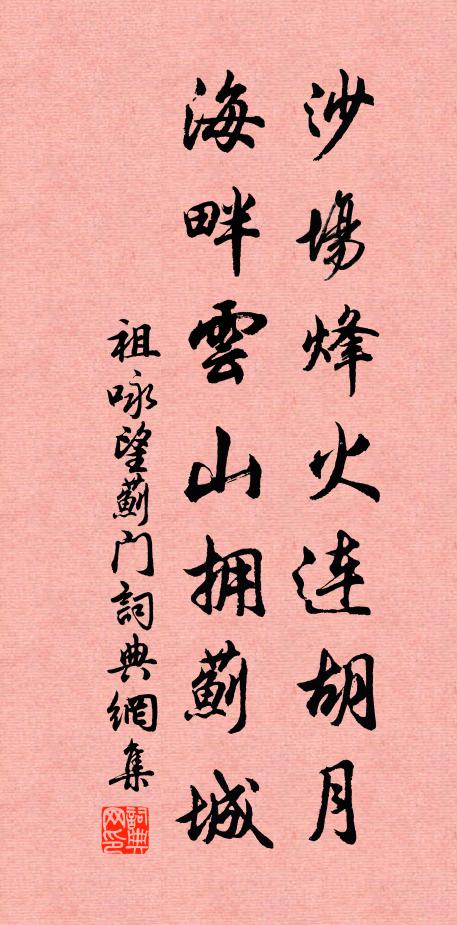 沙場烽火连胡月
海畔雲山拥薊城
祖咏望薊门詞典網集
詞典网印